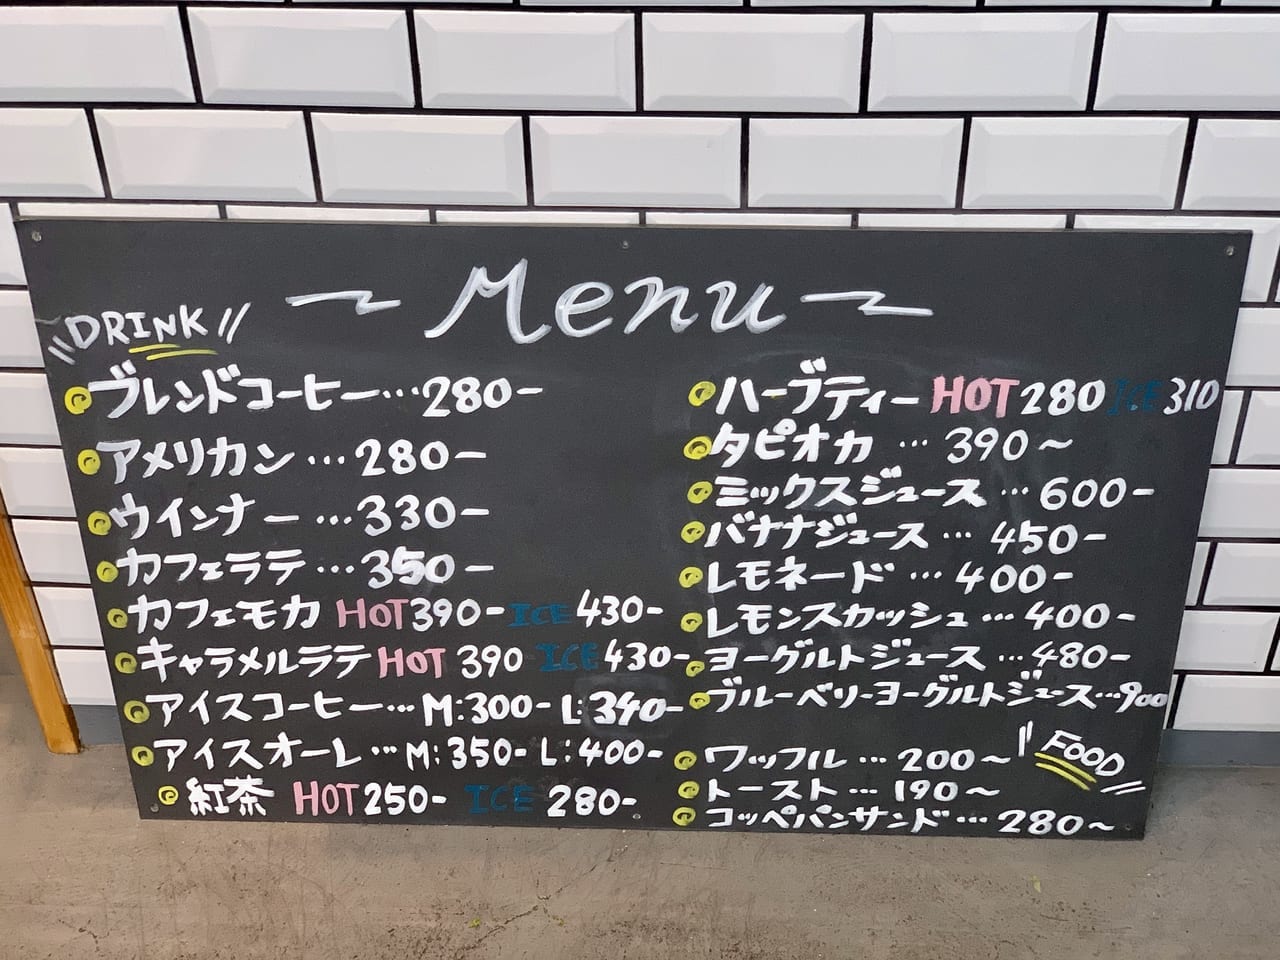 ~Menu~
DRINK
ブレンドコーヒー…280-
アメリカン…280-
ウインナー…330-
カフェラテ…350-
カフェモカ HOT390- ICE 430-
キャラメルラテ HOT 390 ICE 430-
アイスコーヒー…M:300- L:340-
アイスオーレ…M:350- L:400-
紅茶 HOT250- ICE 280-
ハーブティー HOT 280 ICE 310
タピオカ…390~
ミックスジュース…600-
バナナジュース…450-
レモネード…400-
レモンスカッシュ…400-
ヨーグルトジュース…480-
ブルーベリーヨーグルトジュース…900
FOOD
ワッフル…200~
トースト…190~
コッペパンサンド…280~